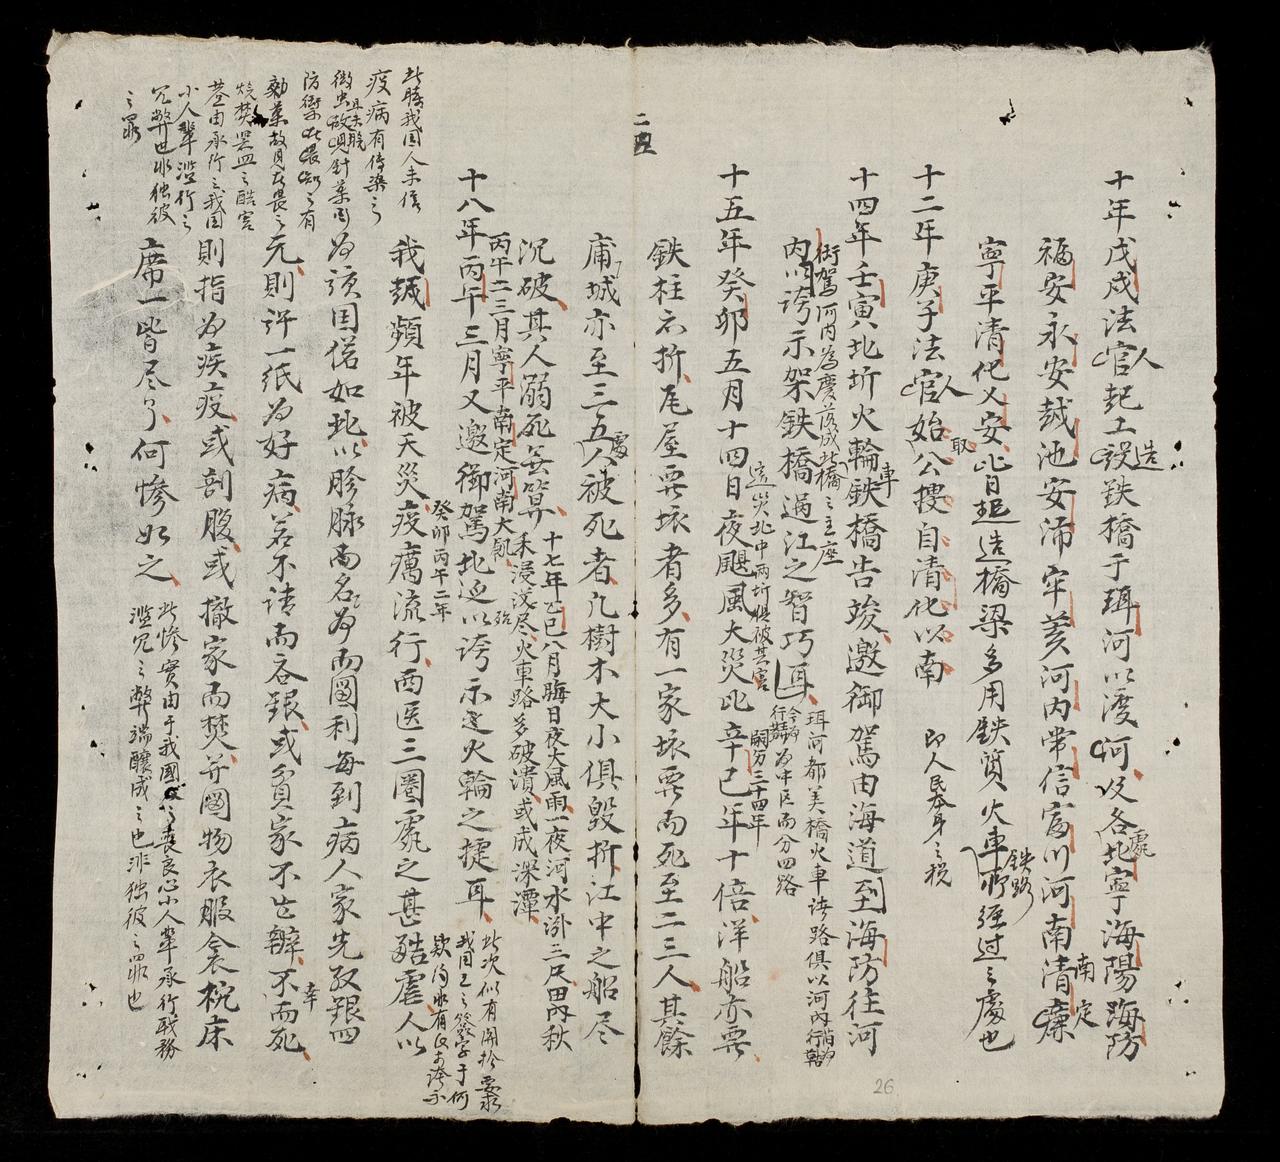 十年戊戌法官人起工設造鉄橋于珥河以渡河及各處北寧海陽海防
福安永安越池安沛宰義河內常信富川河南清廉南定
寧平清化乂安此自起造橋梁多用鉄質火車鉄路所經过之處也
十二年庚子法官人始取公搜自清化以南 即人民本身之税
十四年壬寅八北圻火輪車鉄橋告竣邀御駕由海道到海防往河
御駕河內為慶落成北橋之主座
內以誇示架鉄橋過江之智巧耳
珥河都美橋火車諸路俱以河內
為中区而分四路
十五年癸卯五月十四日夜颶風大災比辛巳年十倍洋船亦要
這災北中兩圻俱被其害
嗣分三十四年
鉄柱亦折尾屋要壊者多有一家壊要而死至二三人其餘
庸城亦至三五處人被死者凡樹木大小俱毀折江中之船尽
沉破其人溺死無算
十七年乙巳八月晦日夜大風雨一夜河水漲二尺田內秋
禾浸沒殆尽火車路多破潰或成深潭
丙午二三月寧平南定河南大飢
十八年丙午三月又邀御駕北巡以誇示火輪之捷耳
此次似有開於要求
我国王之簽字于何
款內
癸卯丙午二年
我越頻年被天災疫癘流行西医三圈處之甚酷虐人以
為該国俗如此以胗脉而名為而圖利每到病人家先取銀四
元則評一紙為好病若不請而吝銀或貧家不出辦不幸而死
則指為疾疫或剖腹或撤家而焚并圖物衣服衾枕床
席一皆尽了何慘如之
此慘實由于我國之喪良心小人輩承行職務
滥冗之弊端釀成之也非独彼之罪也
此時我国人未信
疫病有傳染之
微虫且未脱
防禦
效薬故見在畏之
燒焚器皿之酷害
葢由承行之我国
小人輩滥行之
冗弊也非独彼
之罪
二四
26